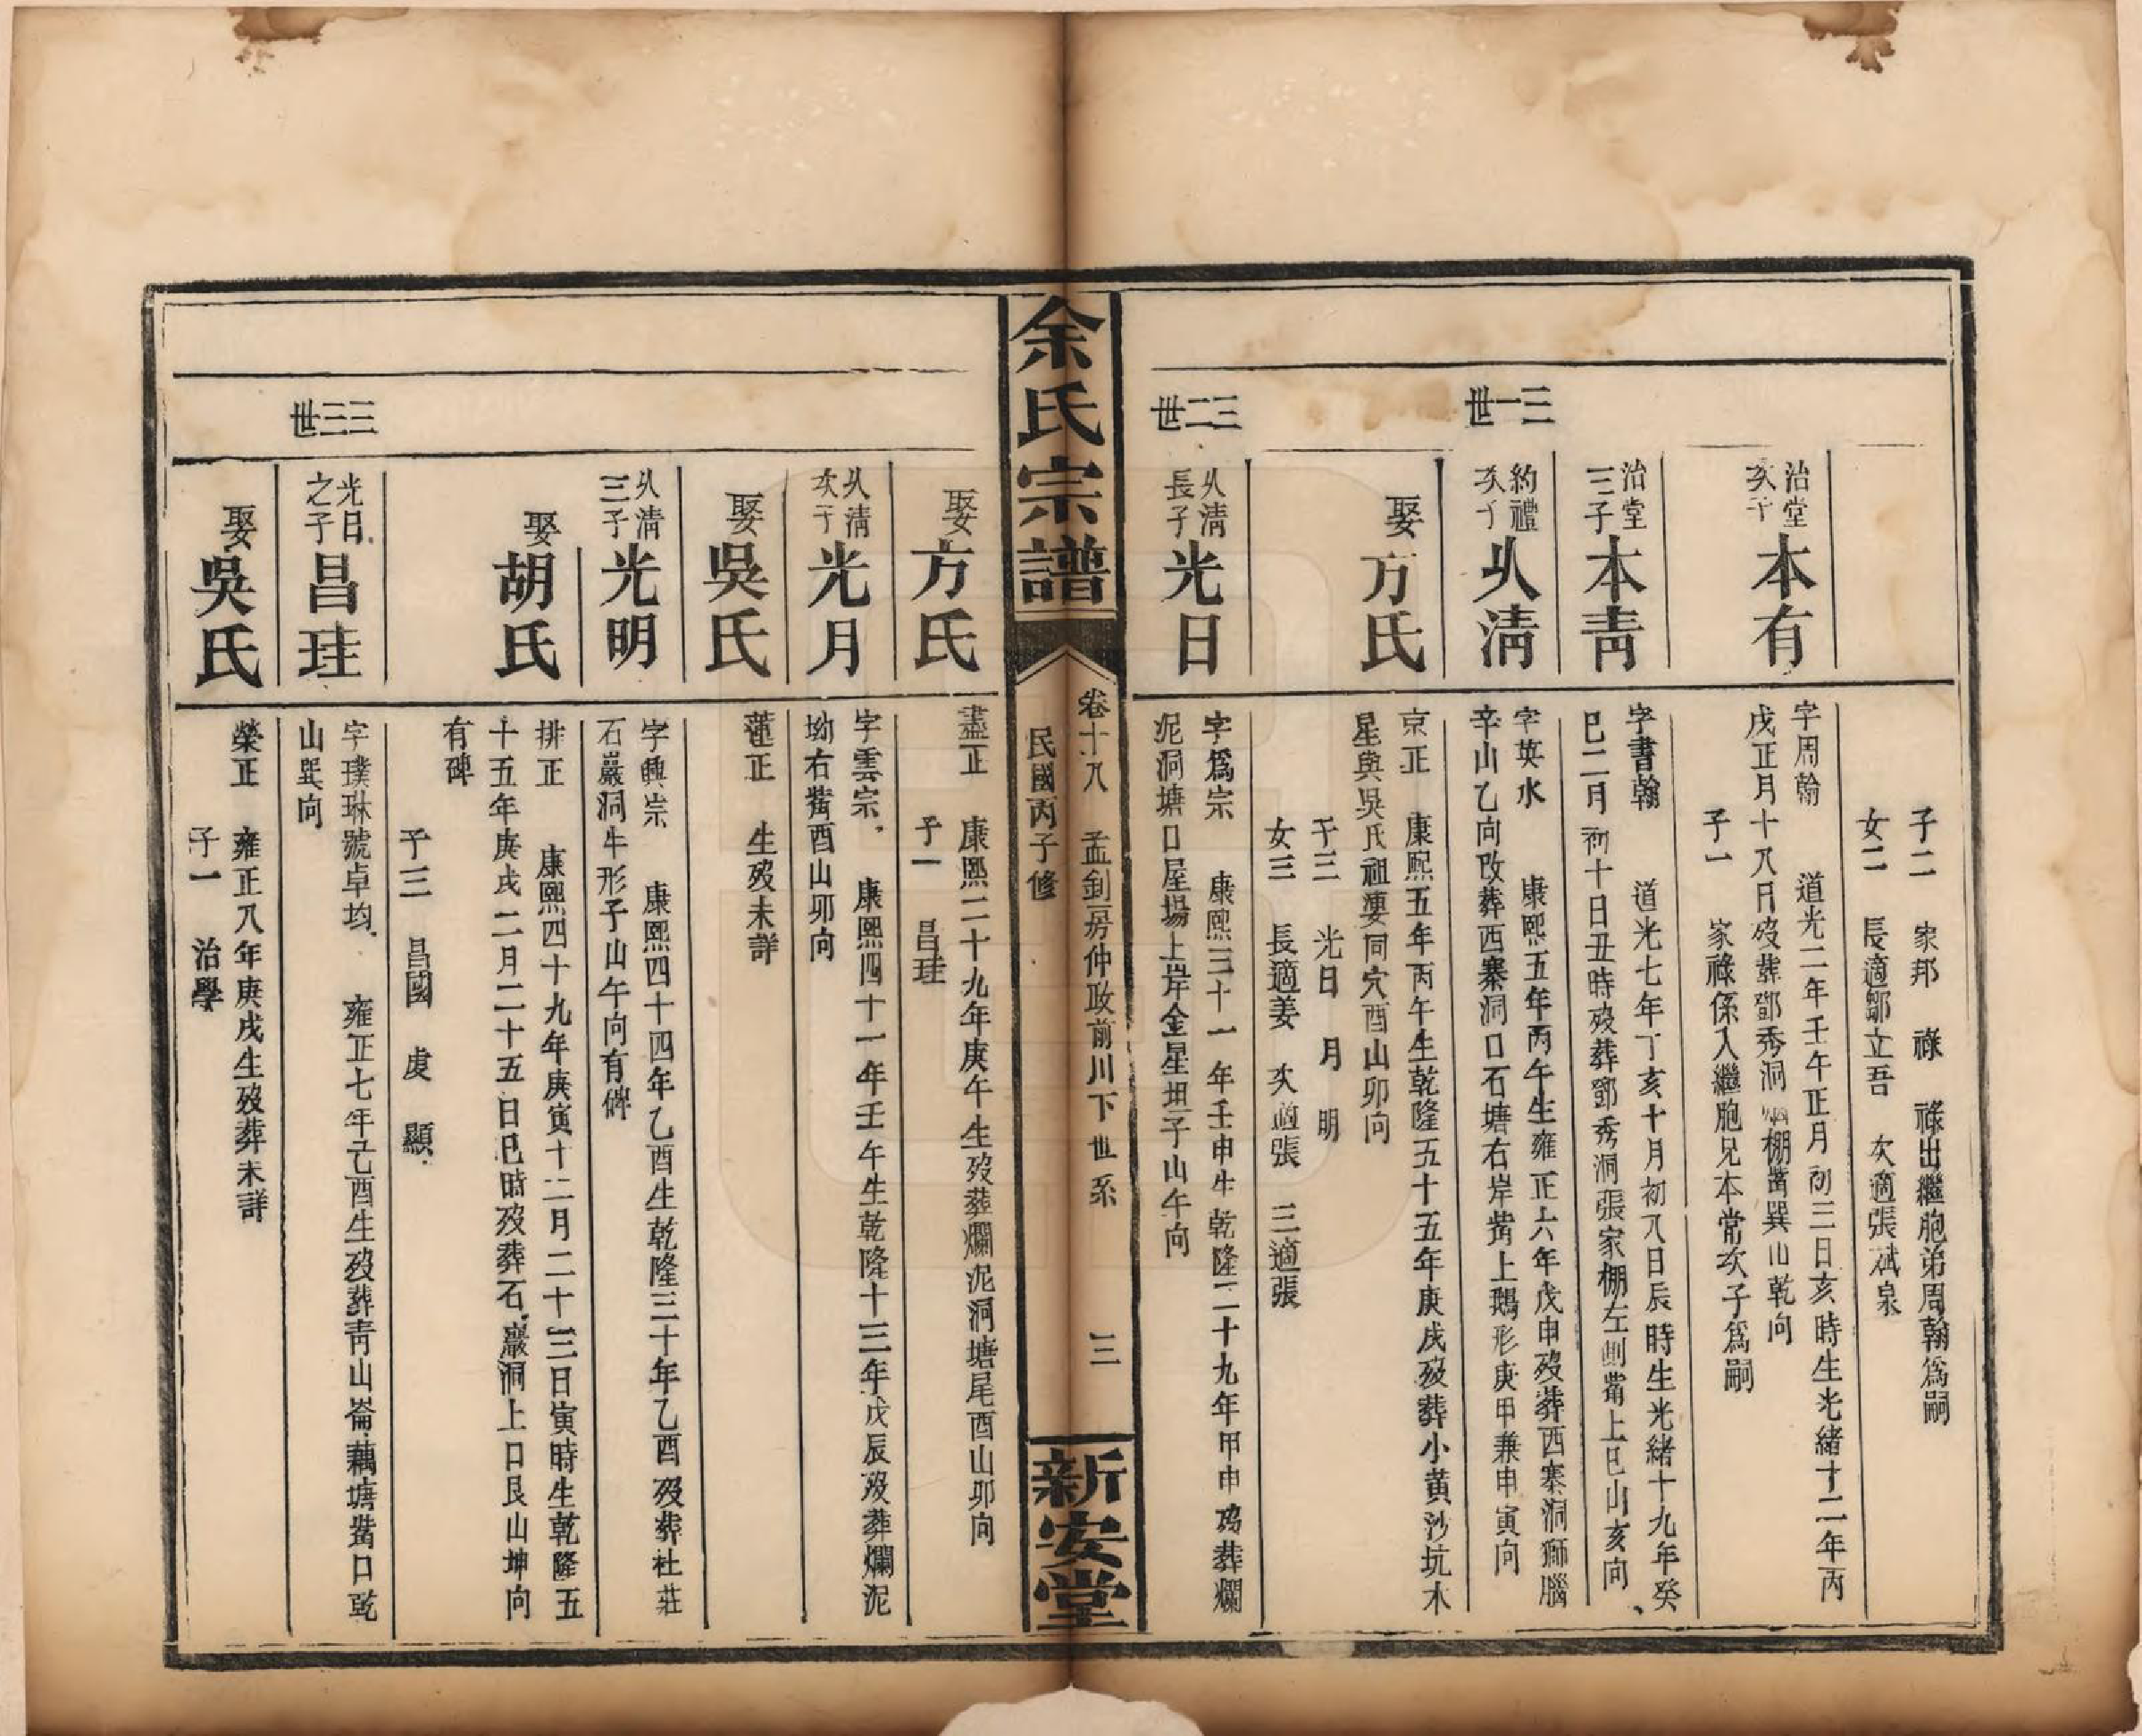 子二 家邦 祿 祿出繼胞弟周翰爲嗣
女二 長適鄒立吾 次適張斌泉
治堂
次子
本有
字周翰 道光二年壬午正月初三日亥時生光緒十二年丙
戌正月十八日歿葬鄧秀洞 棚嘴巽山乾向
子一 家祿係入繼胞兄本常次子爲嗣
治堂
三子
本靑
字書翰 道光七年丁亥十月初八日辰時生光緒十九年癸
巳二月初十日丑時歿葬鄧秀洞張家棚左側嘴上巳山亥向
三一世
約禮
次子
從淸
字英水 康熙五年丙午生雍正六年戊申歿葬西寨洞獅腦
辛山乙向改葬西寨洞口石塘右岸嘴上鵝形庚甲兼申寅向
娶
方氏
京正 康熙五年丙午生乾隆五十五年庚戌歿葬小黃沙坑木
星與吳氏祖 同穴酉山卯向
子三 光日 月 明
女三 長適姜 次適張 三適張
三二世
從淸
長子
光日
字爲宗 康熙三十一年壬申生乾隆二十九年甲申歿葬爛
泥洞塘口屋場上岸金星坦子山午向
余氏宗譜
卷十八 孟釗房仲政前川下世系 三
民國丙子修
新安堂
娶
方氏
盡正 康熙二十九年庚午生歿葬爛泥洞塘尾酉山卯向
子一 昌珪
從淸
次子
光月
字雲宗 康熙四十一年壬午生乾隆十三年戊辰歿葬爛泥
坳右嘴酉山卯向
娶
吳氏
蓮正 生歿未詳
從淸
三子
光明
字興宗 康熙四十四年乙酉生乾隆三十年乙酉歿葬社莊
石巖洞牛形子山午向有碑
娶
胡氏
排正 康熙四十九年庚寅十二月二十三日寅時生乾隆五
十五年庚戌二月二十五日巳時歿葬石巖洞上口艮山坤向
有碑
子三 昌國 虔 顯
三三世
光日
之子
昌珪
字璞琳號卓均 雍正七年己酉生歿葬靑山崙藕塘嘴口乾
山巽向
娶
吳氏
榮正 雍正八年庚戌生歿葬未詳
子一 治學